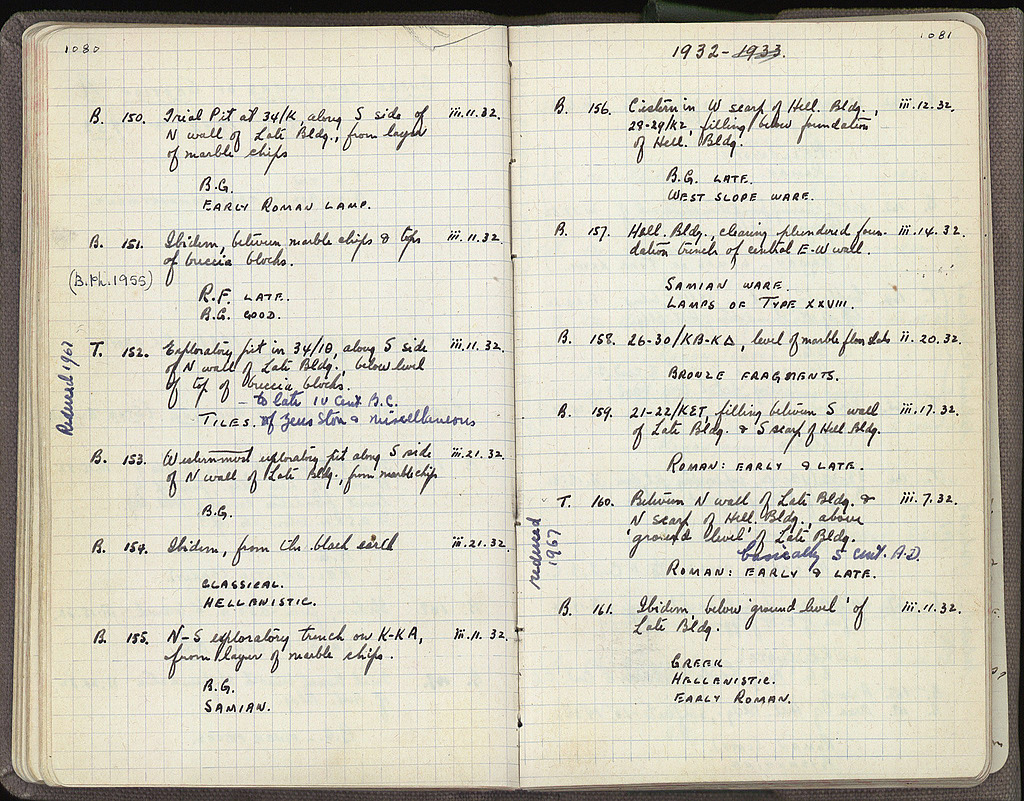 1080
B. 150. Trial Pit at 34/K, along S side of iii.11.32.
N wall of Late Bldg., from layer
of marble chips
B.G.
EARLY ROMAN LAMP.
B. 151. Ibidem, between marble chips & tops iii.11.32.
of breccia blocks.
(B.Ph.1955)
R.F. LATE.
B.G. GOOD.
Reduced 1967
T. 152. Exploratory pit in 34/ΙΘ, along S side iii.11.32.
of N wall of Late Bldg., below level
of top of breccia blocks.
- to late IV cent B.C.
TILES. of Zeus Stoa & miscellaneous
B. 153. Westernmost exploratory pit along S side iii.21.32.
of N wall of Late Bldg., from marble chips
B.G.
B. 154. Ibidem, from the black earth iii.21.32.
CLASSICAL.
HELLENISTIC.
B. 155. N-S exploratory trench on K-KA, iii.11.32.
from layer of marble chips.
B.G.
SAMIAN.
1081
1932-1933.
B. 156. Cistern in W scarp of Hell. Bldg., iii.12.32.
28-29/KZ, filling below foundation
of Hell. Bldg.
B.G. LATE.
WEST SLOPE WARE.
B. 157. Hell. Bldg., clearing plundered foun- iii.14.32.
dation trench of central E-W wall.
SAMIAN WARE.
LAMPS OF TYPE XXVIII.
B. 158. 26-30/KB-KΔ, level of marble floor slabs ii.20.32.
BRONZE FRAGMENTS.
B. 159. 21-22/KET, filling between S wall iii.17.32.
of Late Bldg. & S scarp of Hell Bldg.
ROMAN: EARLY & LATE.
reduced
1967
T. 160. Between N wall of Late Bldg. & iii.7.32.
N scarp of Hell. Bldg., above
'ground level' of Late Bldg.
basically 5 cent. A.D.
ROMAN: EARLY & LATE.
B. 161. Ibidem, below 'ground level' of iii.11.32.
Late Bldg.
GREEK
HELLENISTIC.
EARLY ROMAN.